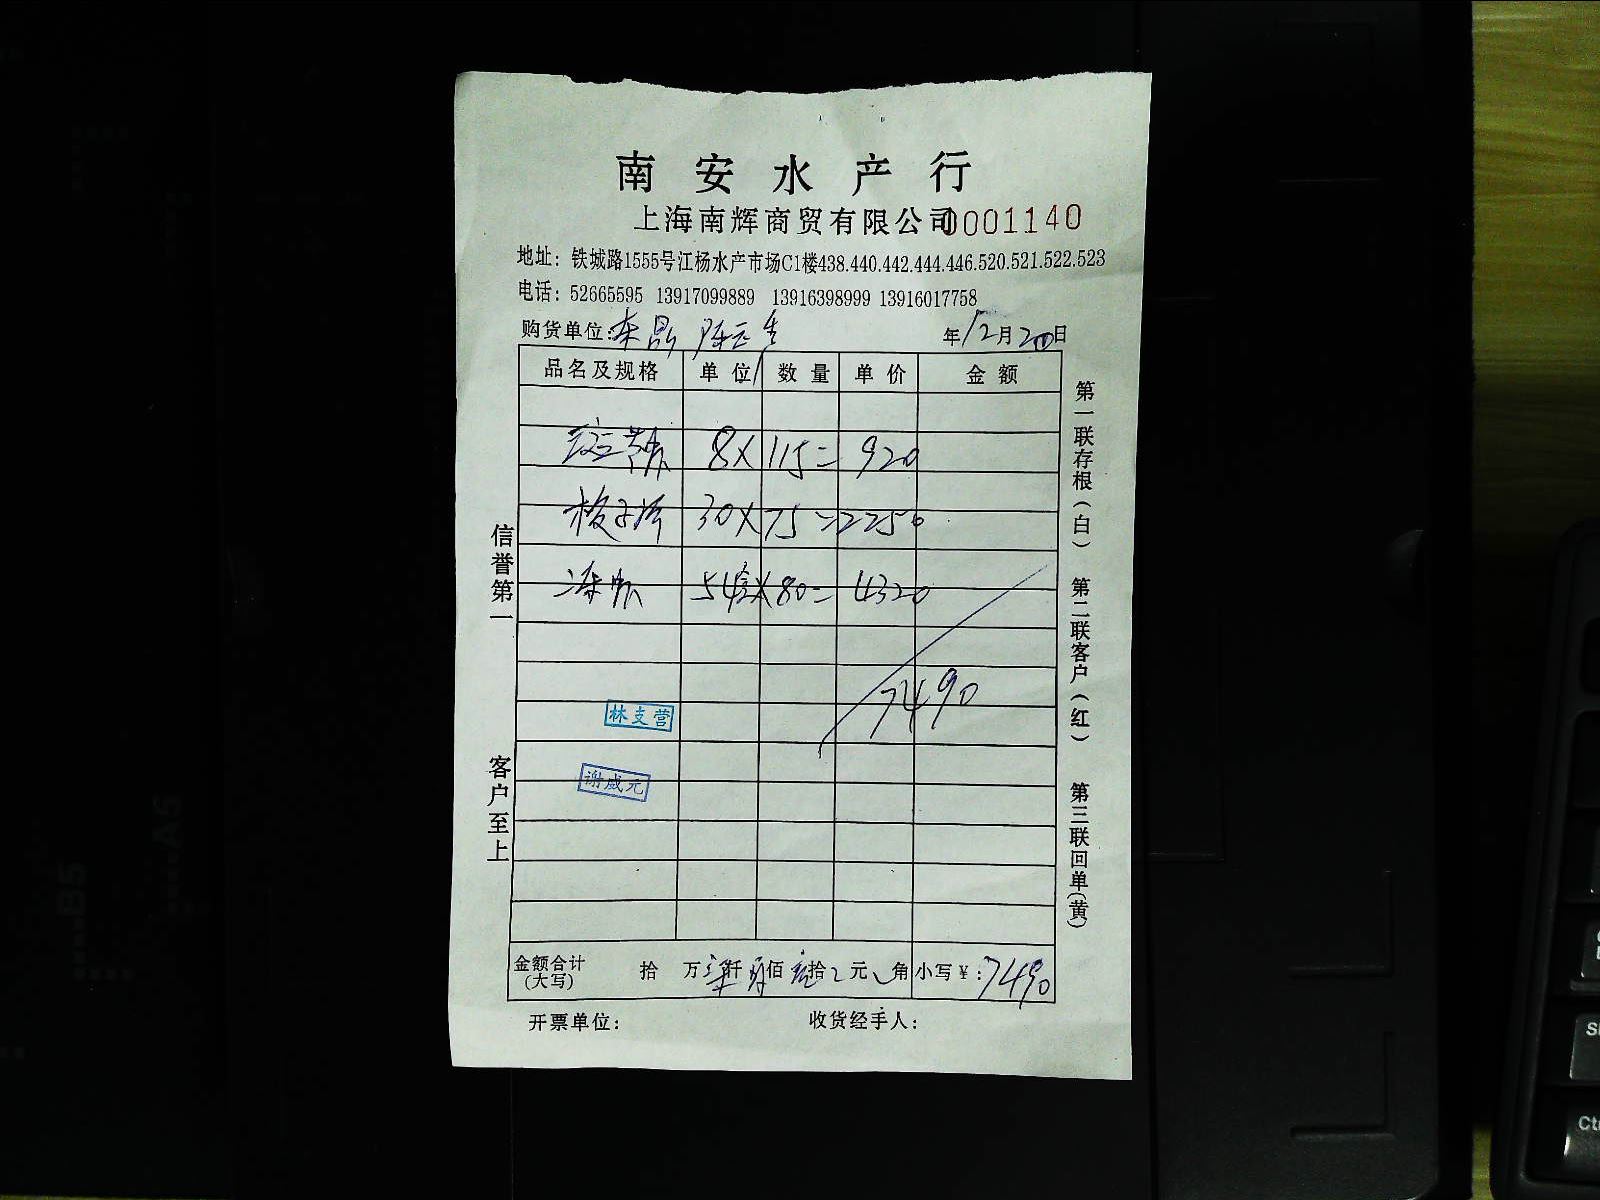 南安水产行
上海南辉商贸有限公司 0001140
地址：铁城路1555号江杨水产市场C1楼438.440.442.444.446.520.521.522.523
电话：52665595 13917099889 13916398999 13916017758
购货单位: 年12月20日
品名及规格 单位 数量 单价 金额
8×115=920
格子 30×75=2250
54 ×80=4320
7490
林支营
谢成元
金额合计 拾 万 仟 佰 拾 元 角 小写￥:7490
(大写)
开票单位: 收货经手人:
信誉第一
客户至上
第一联存根(白)
第二联客户(红)
第三联回单(黄)
B5
A5
Ctr